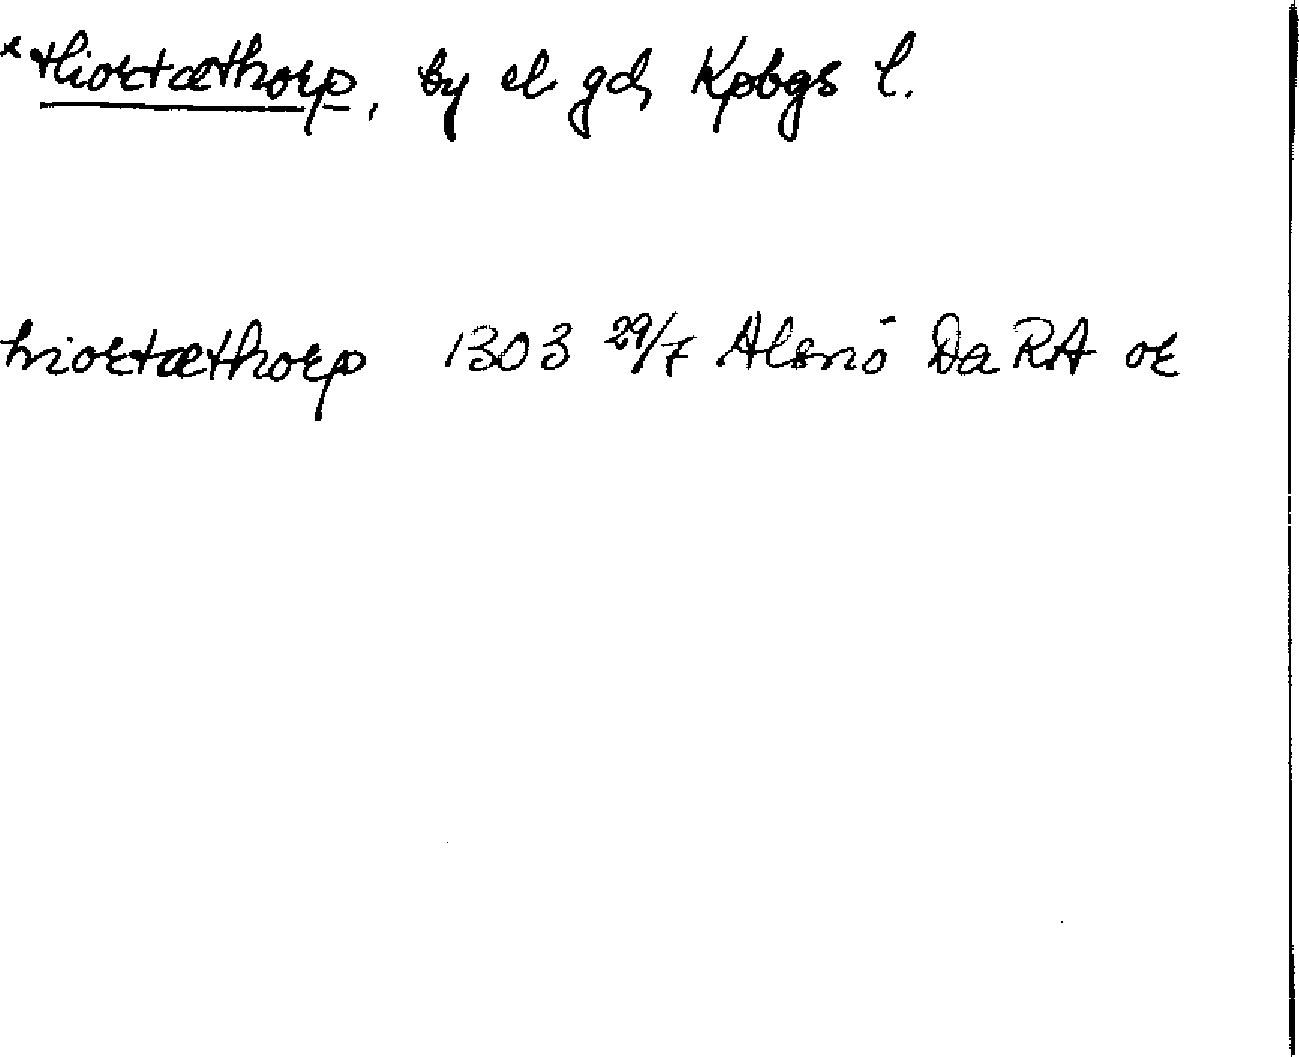 *thiortæthorp, by el gd, Kpbgs l.
hiortæthorp 1303 29/7 Alsnö DaRA or